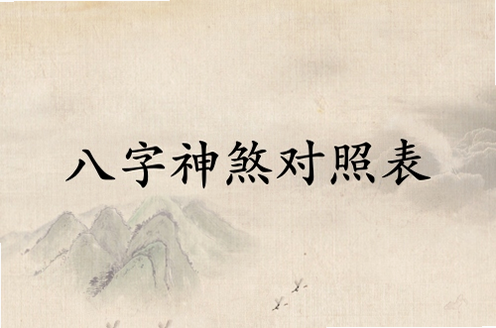 八字神煞对照表